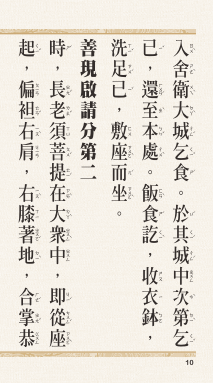 入舍衛大城乞食。於其城中次第乞
已，還至本處。飯食訖，收衣鉢，
洗足已，敷座而坐。
善現啟請分第二
時，長老須菩提在大眾中，即從座
起，偏袒右肩，右膝著地，合掌恭
10